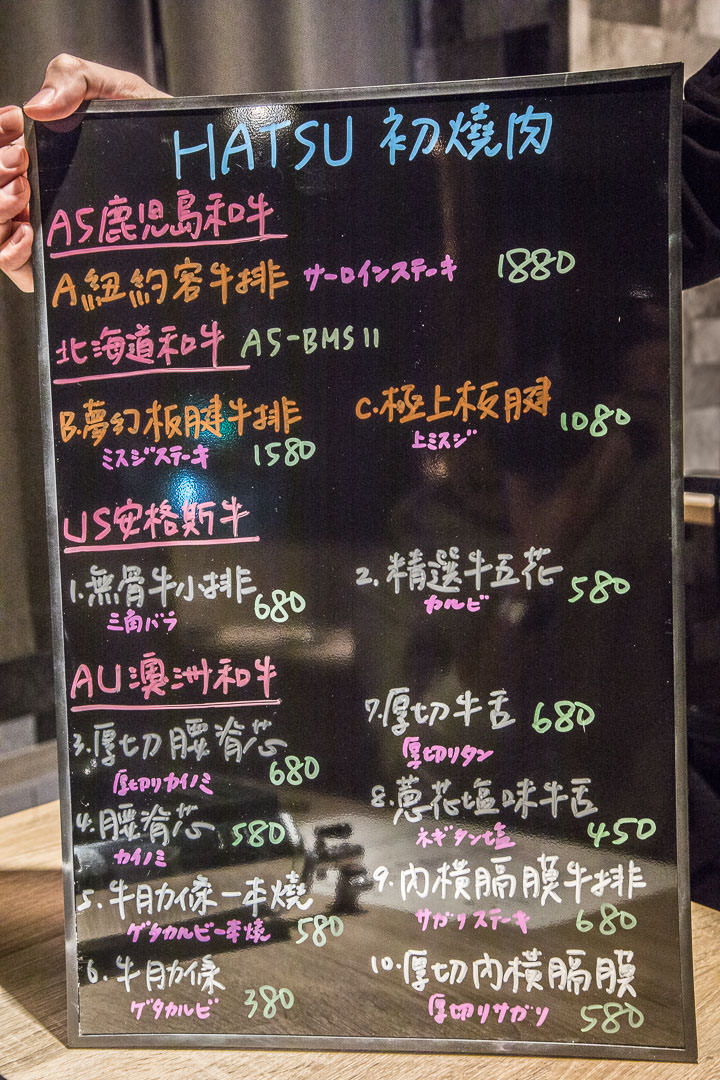 HATSU 初燒肉
A5鹿児島和牛
A紐約客牛排 サーロインステーキ 1880
北海道和牛 A5-BMS11
B.夢幻板腱牛排
ミスジステーキ 1580
C.極上板腱 1080
上ミスジ
US安格斯牛
1.無骨牛小排 680
三角バラ
2.精選牛五花 580
カルビ
AU澳洲和牛
3.厚切腰脊芯 680
厚切りカイノミ
4.腰脊芯 580
カイノミ
5.牛肋條一本燒
ゲタカルビ一本焼 580
6.牛肋條
ゲタカルビ 380
7.厚切牛舌 680
厚切りタン
8.蔥花塩味牛舌
ネギタン塩 450
9.內橫膈膜牛排
サガリステーキ 680
10.厚切內橫膈膜
厚切りサガリ 580